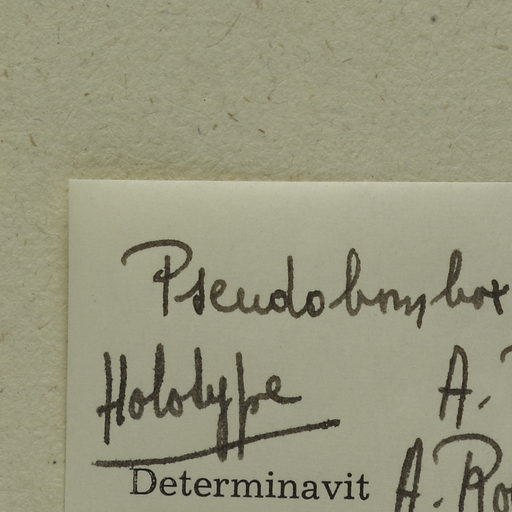 Pseudobombax
Holotype A.
Determinavit A. Ro